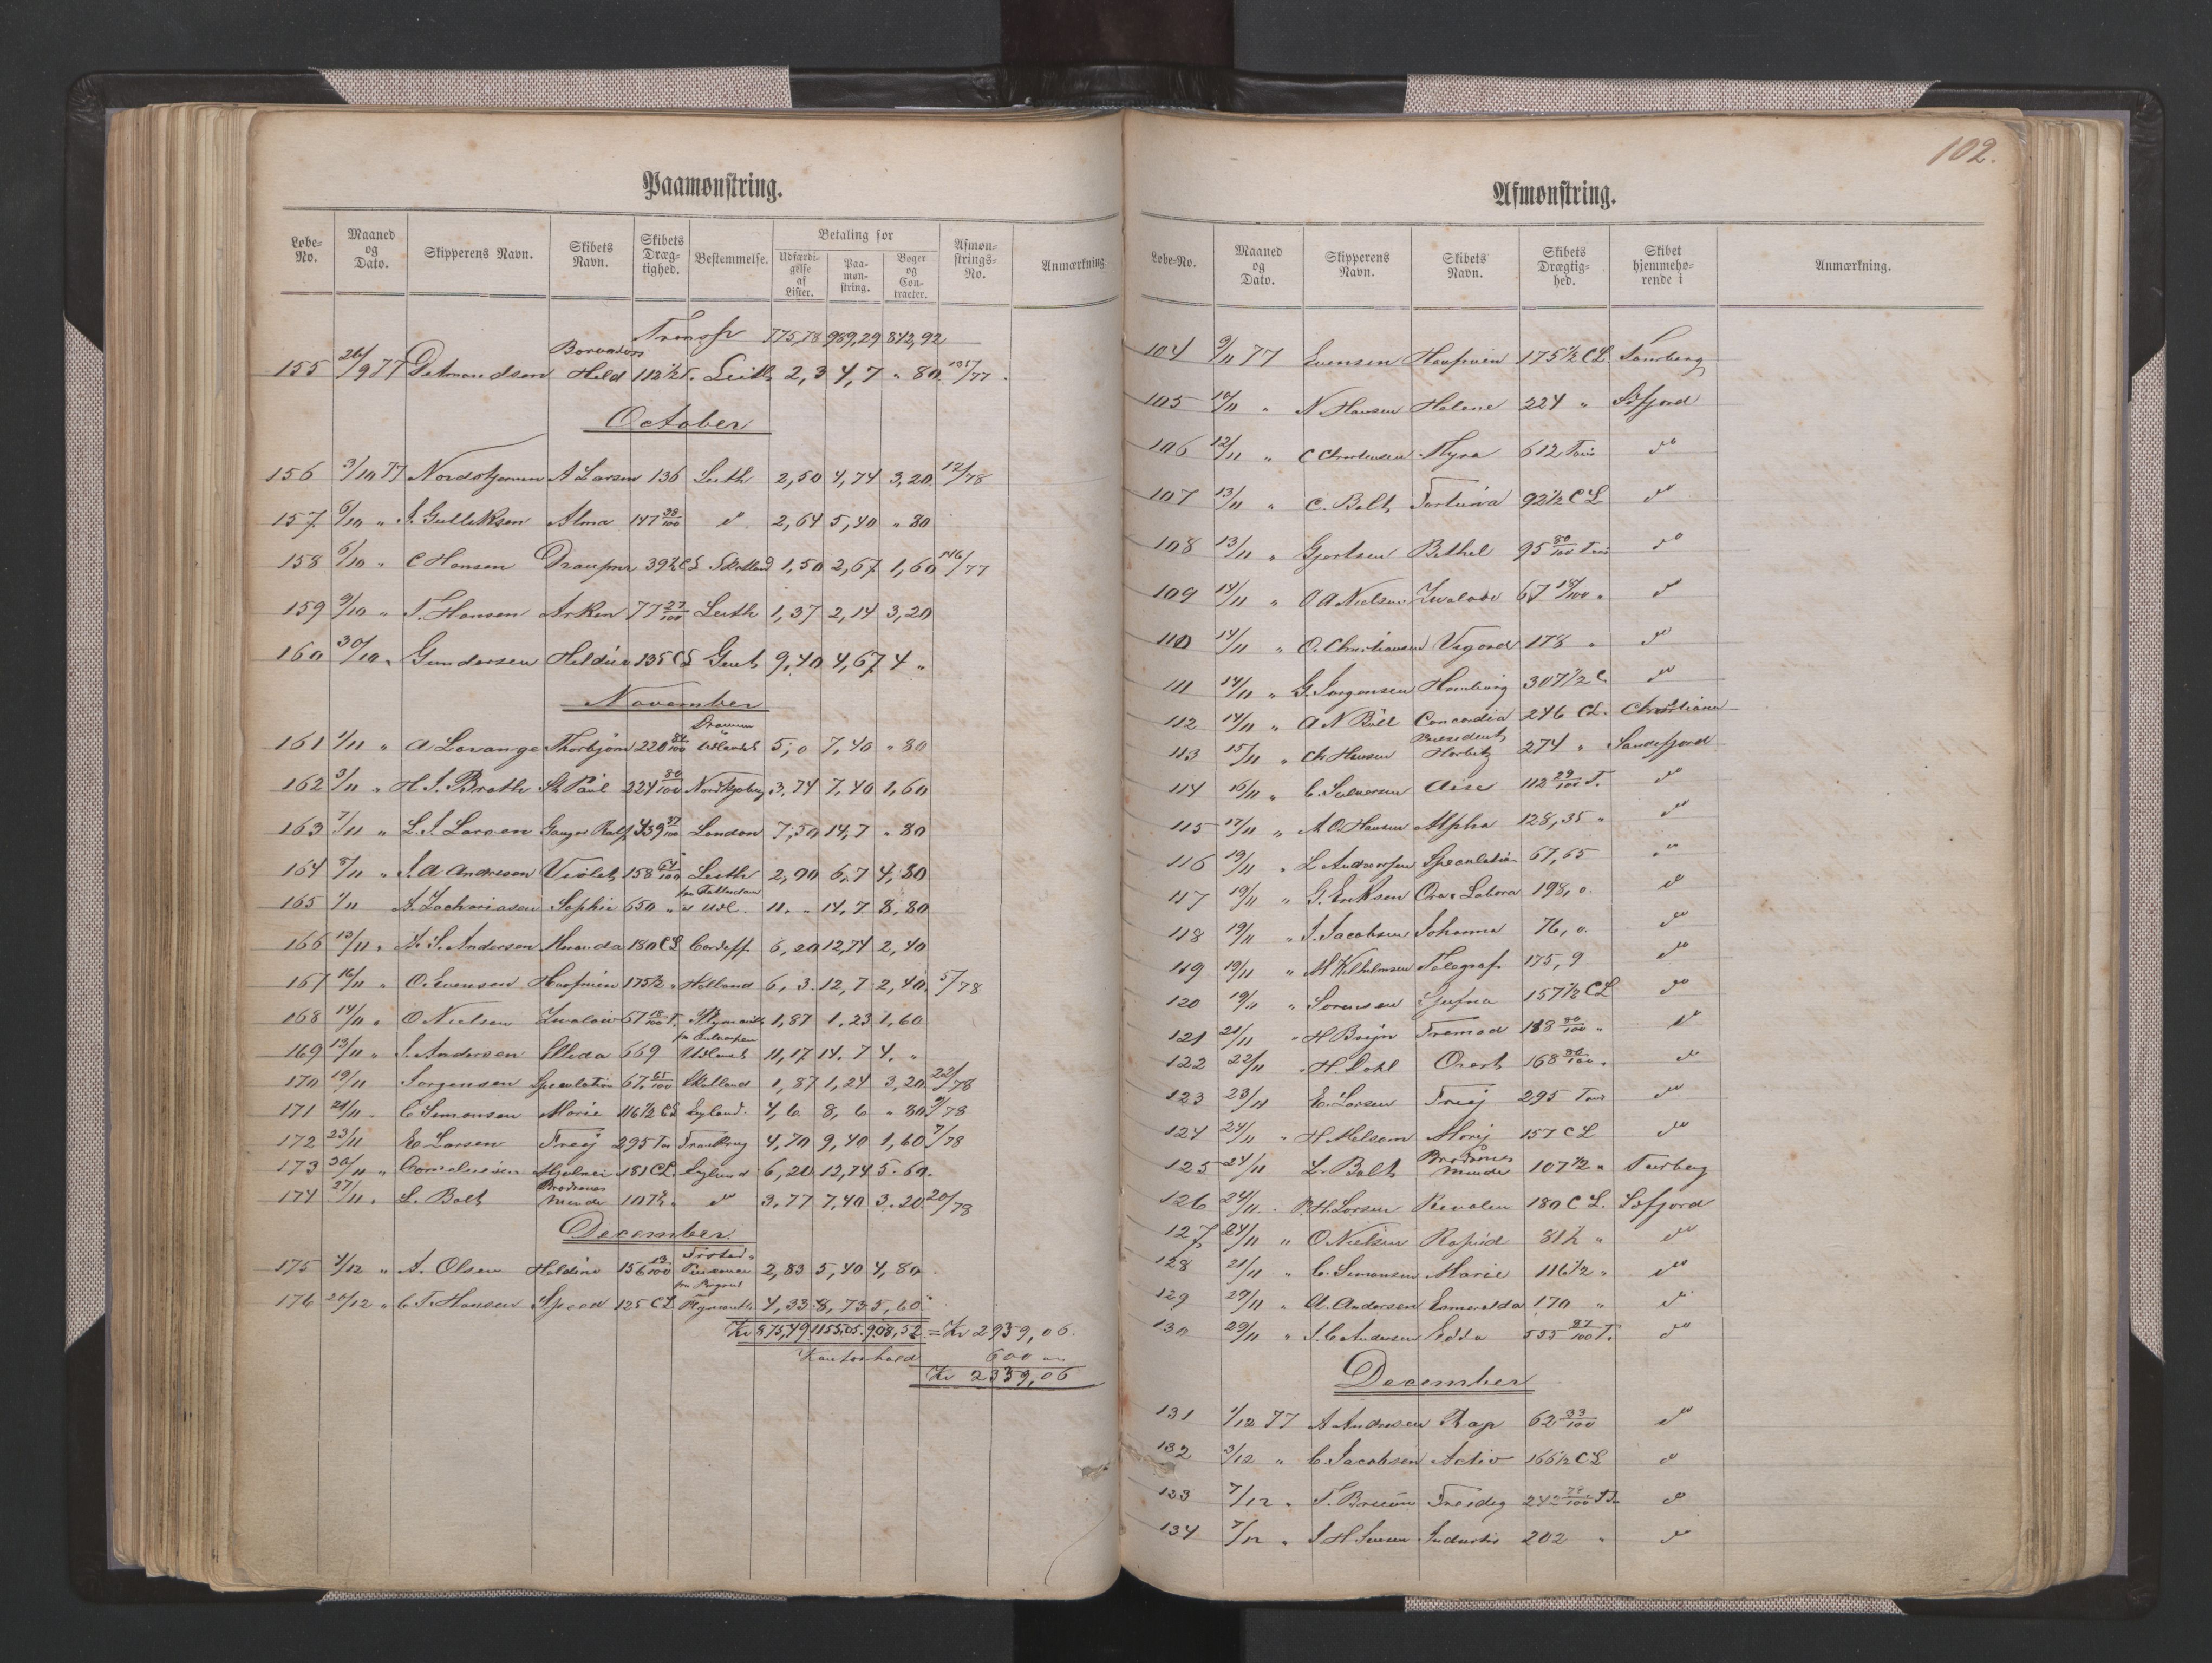 102.
Paamønstring.
Løbe-No. Maaned og Dato. Skipperens Navn. Skibets Navn. Skibets Drægtighed. Bestemmelse. Betaling for Udfærdigelse af Lister. Paamønstring. Bøger og Contracter. Afmønstrings-No. Anmærkning
Transp 775,78 989,29 842,92
155 26/9 77 Detmondsen Held 112 1/2 T. Leith 2,3 4,7 " 80 135/77
October
156 3/10 77 Nordstjernen A Larsen 136 Leith 2,50 4,74 3,20 12/78
157 6/10 " J. Gulliksen Alma 147 38/100 do 2,64 5,40 " 80
158 6/10 " C Hansen Draupner 39 1/2 CL Skotland 1,50 2,67 1,60 146/77
159 9/10 " T. Hansen Arken 77 27/100 Leith 1,37 2,14 3,20
160 30/10 " Gundersen Heldine 135 CL Gent 9,40 4,67 4 "
November
161 1/11 " A Lovange Thorbjørn 220 84/100 Drammen Udlandet 5,0 7,40 " 80
162 3/11 " H. J. Broth St Paul 224 80/100 3,74 7,40 1,60
163 7/11 " L. J. Larsen Ganger Rolf 439 37/100 London 7,30 14,7 " 80
164 8/11 " J. A Andresen Violet 158 64/100 Leith 2,90 6,7 4,80
165 1/11 A. Zachariasen Sophie 650 " 11, " 14,7 8,80
166 13/11 " A. S. Andersen Meranda 180 CL Cardiff 6,20 12,74 2,40
167 16/11 " O. Evensen Haufruen 175 1/2 " Holland 6,3 12,7 2,40 5/78
168 14/11 " O Nielsen 67 18/100 T. Plymouth 1,87 1,23 1,60
169 13/11 " J. Andersen Ellida 669 fra Antwerpen Udlandet 11,17 14,7 4, "
170 19/11 Jørgensen Speculation 67 65/100 Skotland 1,87 1,24 3,20 22/78
171 21/11 " C. Simonsen Marie 116 1/2 CL England 4,6 8,6 " 80 9/78
172 23/11 E Larsen Freij 295 Tons Frankrig 4,70 9,40 1,60 7/78
173 26/11 " Cornelisen Mjølner 181 CL England 6,20 12,74 5,60
174 27/11 " L. Bolt Brødrenes Minde 107 1/2 " do 3,77 7,40 3,20 20/78
December
175 4/12 " A. Olsen Heldine 156 13/100 2,83 5,40 4,80
176 20/12 " C. T. Hansen Speed 125 CL Plymouth 4,33 8,73 5,60
Kr 875,49 1155,05 908,52 = Kr 2939,06
Kontorhold 600
Kr 2339,06
Afmønstring.
Løbe-No. Maaned og Dato. Skipperens Navn. Skibets Navn. Skibets Drægtighed. Skibet hjemmehørende i Anmærkning.
104 9/11 77 Evensen Haufruen 175 1/2 CL Tønsberg
105 10/11 " N Hansen Helene 224 " Sdfjord
106 12/11 " C Christensen Thyra 612 Tons do
107 13/11 " C. Bolt Fortuna 92 1/2 CL do
108 13/11 " Gjertsen Bethel 95 80/100 Tons do
109 14/11 " O A Nielsen 67 18/100 " do
110 14/11 " O. Christiansen Vigord 178 " do
111 14/11 " G. Jørgensen Hamborg 307 1/2 C do
112 14/11 " A N Bull Concordia 246 CL. Christiania
113 15/11 " Ch Hansen President Harbitz 274 " Sandefjord
114 16/11 " C. Salvesen Aise 112 29/100 T. do
115 17/11 " A. O. Hansen Alpha 128,35 " do
116 19/11 " L Andersen Speculation 67,65 do
117 19/11 " G. Eriksen Ora & Labora 198,0. do
118 19/11 " J. Jacobsen Johanna 76,0. do
119 19/11 " M Vilhelmsen Telegraf 175,9 do
120 19/11 " Sørensen Gefna 157 1/2 CL do
121 21/11 " H Bryn Fremad 188 80/100 " do
122 22/11 " H. Dahl Onert 168 80/100 " do
123 23/11 E. Larsen Freij 295 Tons do
124 24/11 " H Melsom Norg 157 CL do
125 24/11 L. Bolt Brødrenes Minde 107 1/2 " Tønsberg
126 24/11 " P. H. Larsen Revalen 180 C L. Sdfjord
127 24/11 " O Nielsen Rapid 81 1/2 " do
128 21/11 " C. Simonsen Marie 116 1/2 " do
129 29/11 " A. Andersen Esmeralda 170 " do
130 29/11 " J. C Andersen Edda 555 37/100 T. do
December
131 1/12 77 A Andresen Rap 62 33/100 do
132 3/12 " C. Jacobsen Activ 166 1/2 CL do
133 7/12 " T. Bruun Freidig 242 74/100 T do
134 7/12 " J H Jensen Industri 202 " do